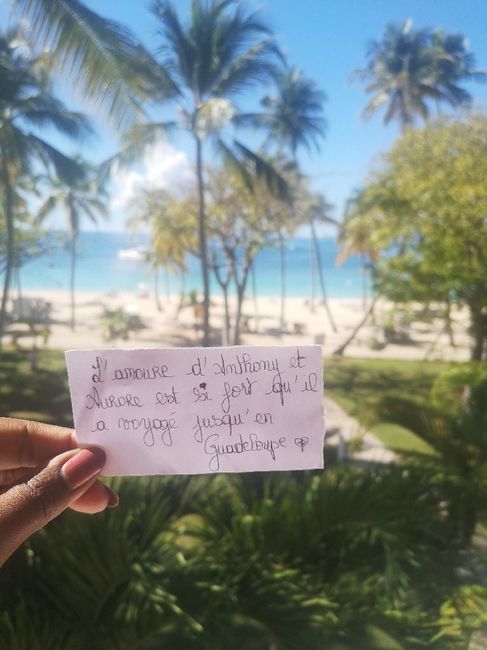 L'amoure d'Anthony et
Aurore est si fort qu'il
a voyagé jusqu'en
Guadeloupe